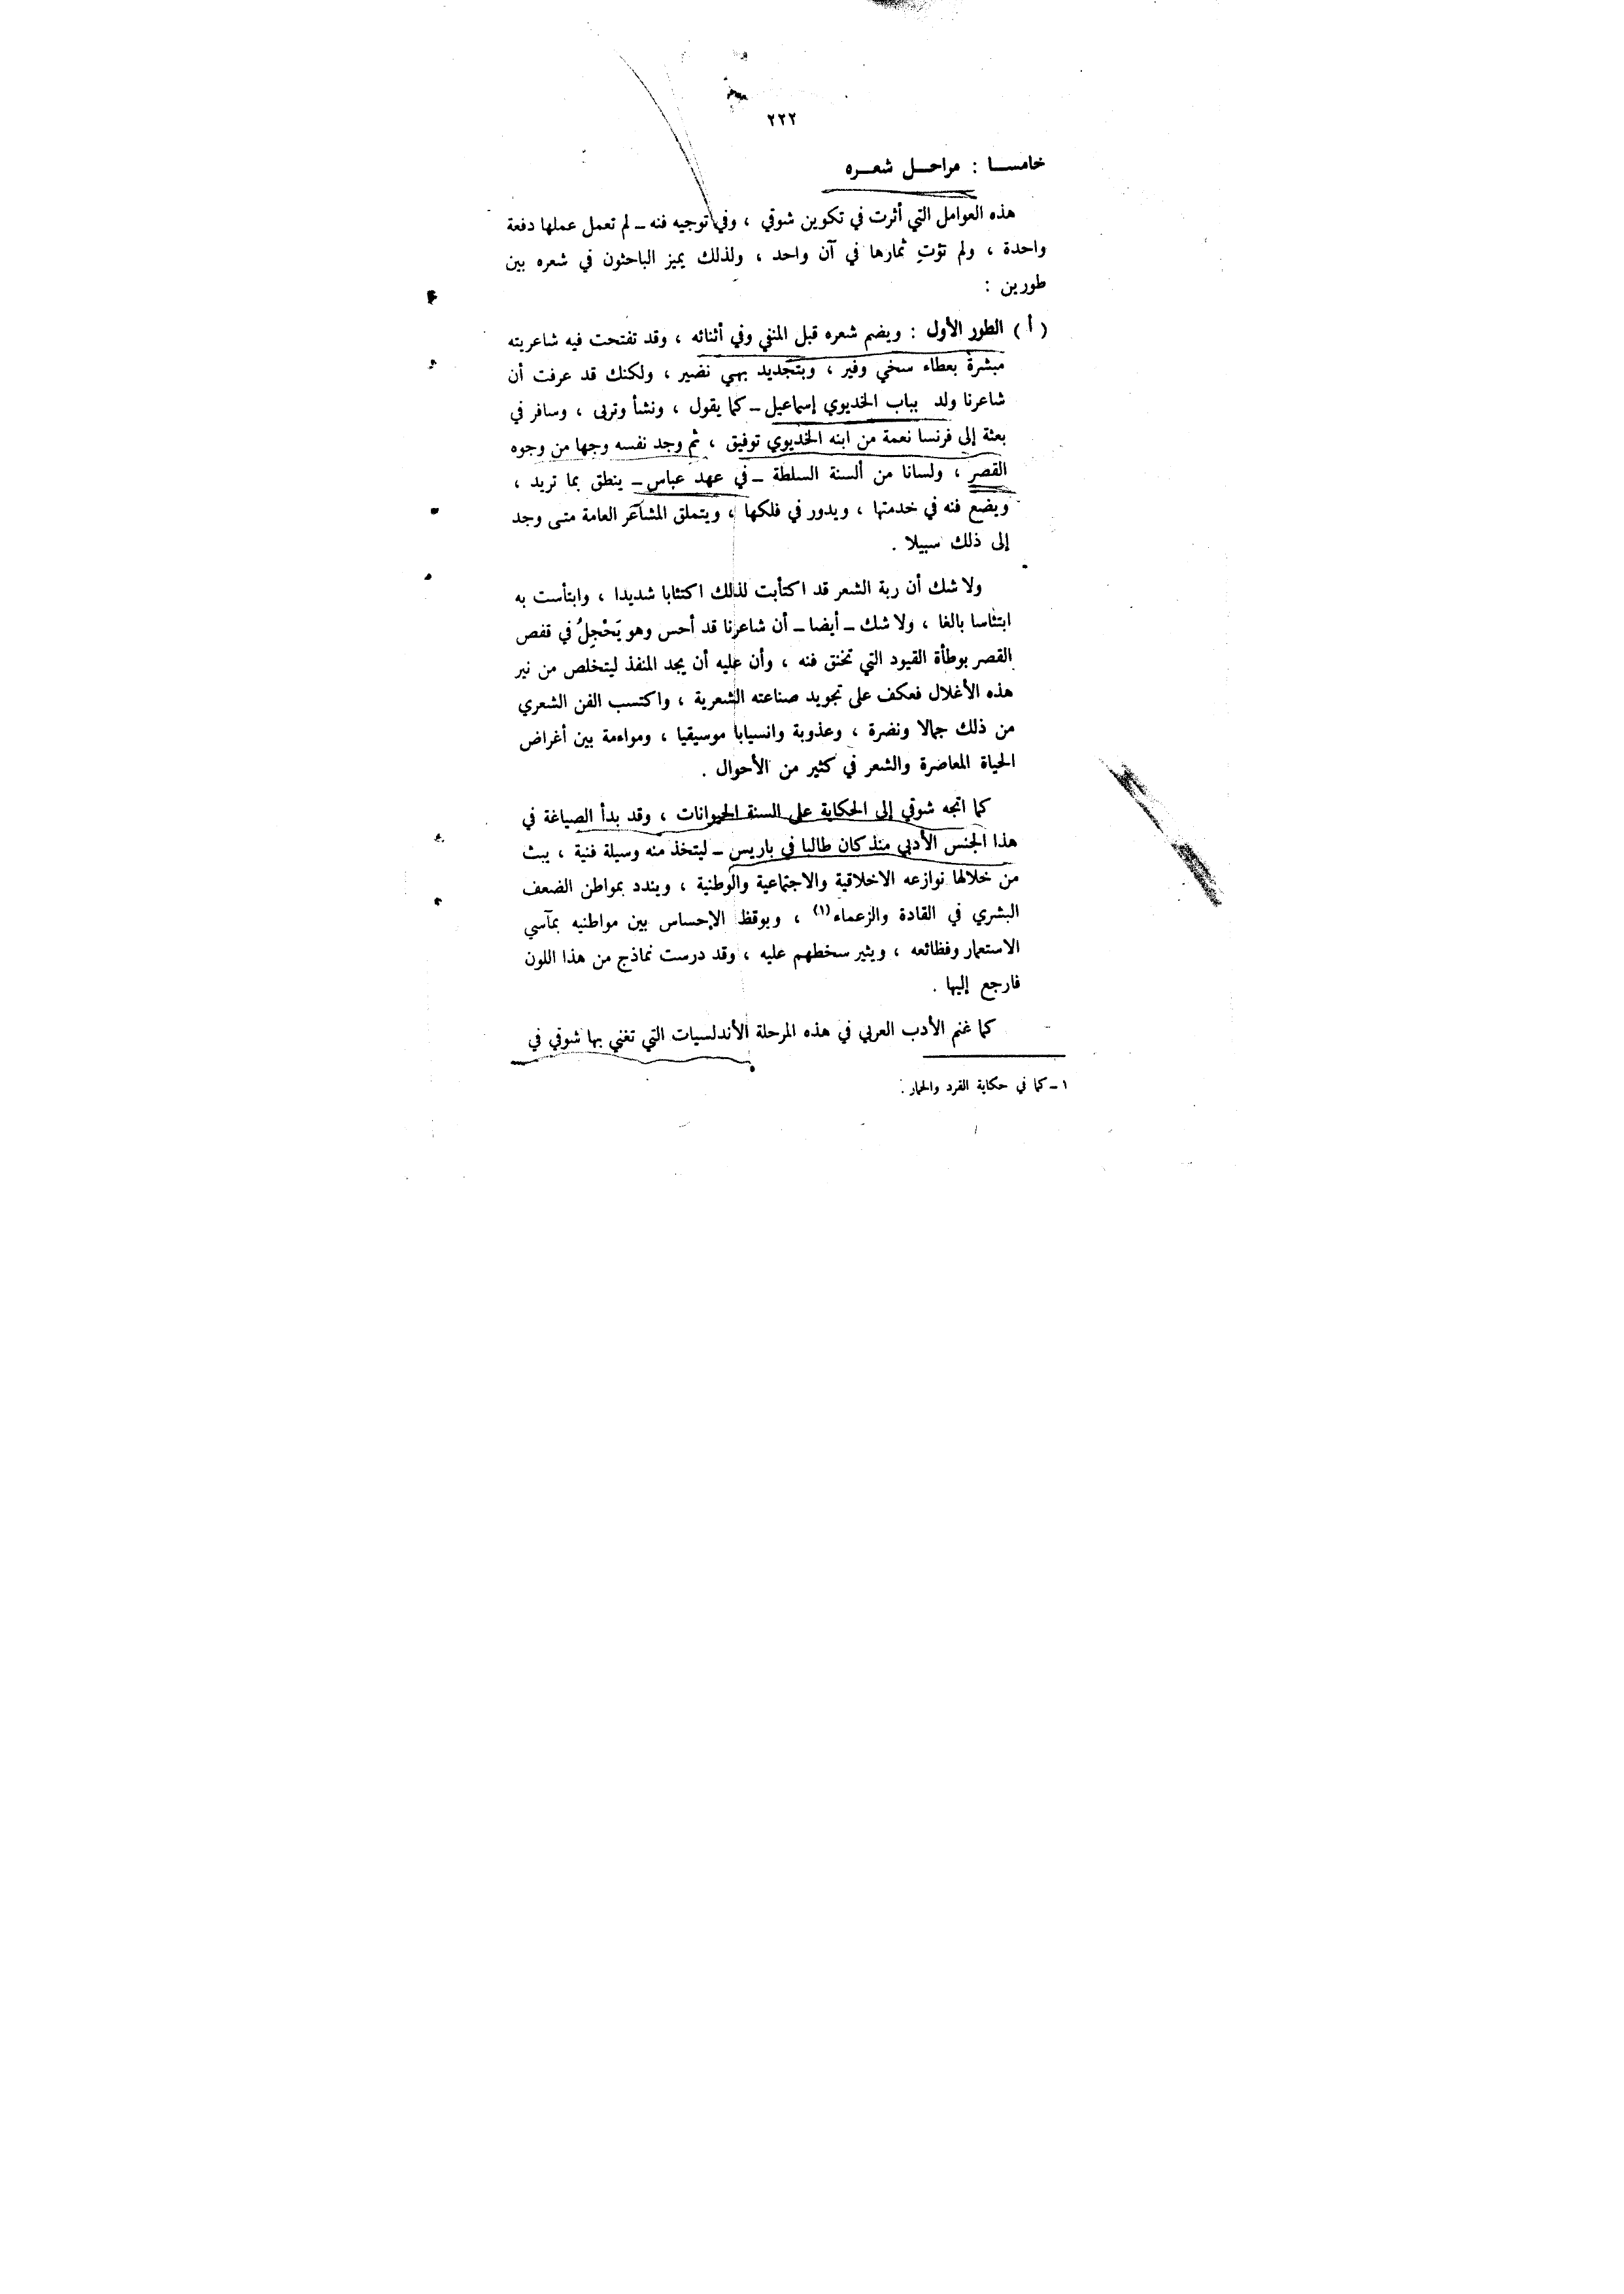 ٢٢٢
خامسـا : مراحـل شعـره
هذه العوامل التي أثرت في تكوين شوقي ، وفي توجيه فنه ــ لم تعمل عملها دفعة
واحدة ، ولم تؤتِ ثمارها في آن واحد ، ولذلك يميز الباحثون في شعره بين
طورين :
( أ ) الطور الأول : ويضم شعره قبل المنفي وفي أثنائه ، وقد تفتحت فيه شاعريته
مبشرة بعطاء سخي وفير ، وبتجديد بهي نضير ، ولكنك قد عرفت أن
شاعرنا ولد بباب الخديوي إسماعيل ــ كما يقول ، ونشأ وتربى ، وسافر في
بعثة إلى فرنسا نعمة من ابنه الخديوي توفيق ، ثم وجد نفسه وجها من وجوه
القصر ، ولسانا من ألسنة السلطة ــ في عهد عباس ــ ينطق بما تريد ،
ويضع فنه في خدمتها ، ويدور في فلكها ، ويتملق المشاعر العامة متى وجد
إلى ذلك سبيلا .
ولا شك أن ربة الشعر قد اكتأبت لذلك اكتئابا شديدا ، وابتأست به
ابتئاسا بالغا ، ولا شك ــ أيضا ــ أن شاعرنا قد أحس وهو يَحْجِلُ في قفص
القصر بوطأة القيود التي تخنق فنه ، وأن عليه أن يجد المنفذ ليتخلص من نير
هذه الأغلال فعكف على تجويد صناعته الشعرية ، واكتسب الفن الشعري
من ذلك جمالا ونضرة ، وعذوبة وانسيابا موسيقيا ، ومواءمة بين أغراض
الحياة المعاصرة والشعر في كثير من الأحوال .
كما اتجه شوقي إلى الحكاية على السنة الحيوانات ، وقد بدأ الصياغة في
هذا الجنس الأدبي منذ كان طالبا في باريس ــ ليتخذ منه وسيلة فنية ، يبث
من خلالها نوازعه الاخلاقية والاجتماعية والوطنية ، ويندد بمواطن الضعف
البشري في القادة والزعماء(١) ، ويوقظ الإحساس بين مواطنيه بمآسي
الاستعمار وفظائعه ، ويثير سخطهم عليه ، وقد درست نماذج من هذا اللون
فارجع إليها .
كما غنم الأدب العربي في هذه المرحلة الأندلسيات التي تغني بها شوقي في
١ ــ كما في حكاية القرد والحمار .